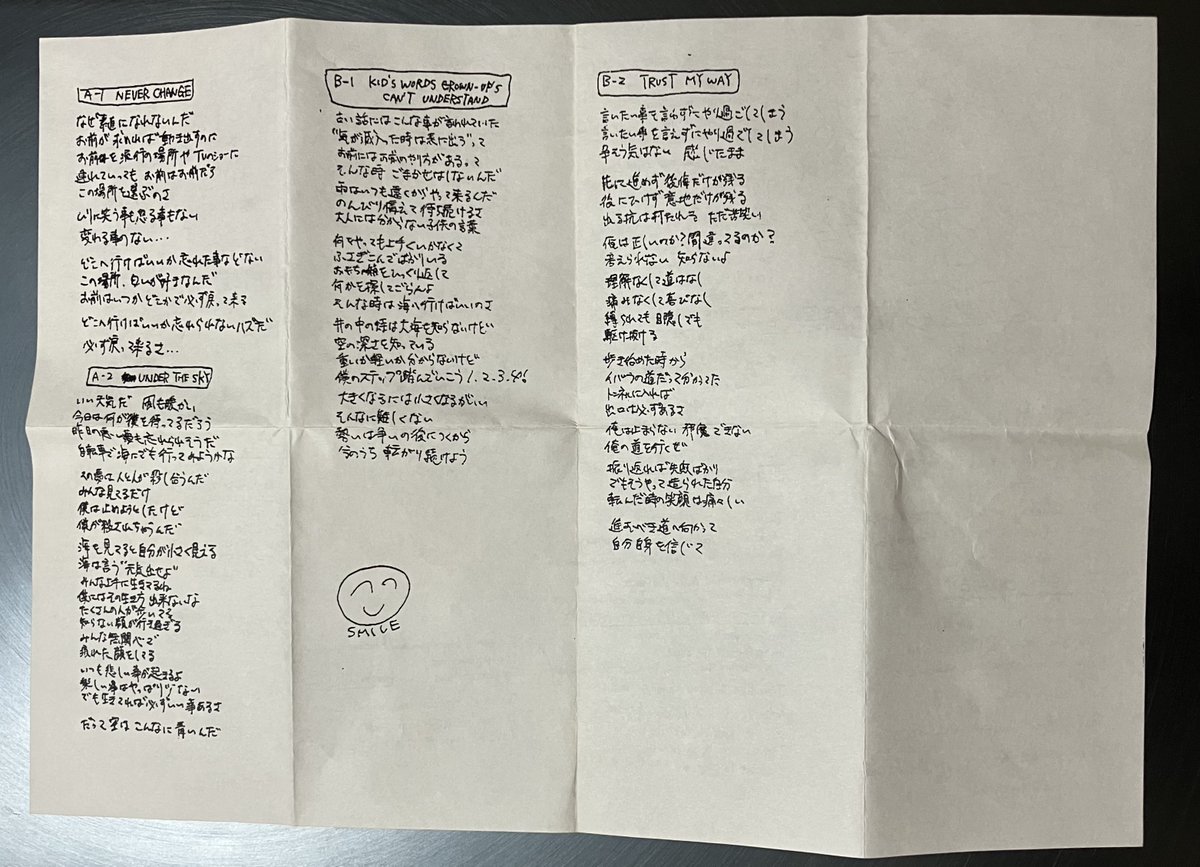 A-1 NEVER CHANGE
なぜ素直になれないんだ
お前が求めれば動き出すのに
お前を流行の場所やTVショーに
連れていっても お前はお前だろ
この場所を選ぶのさ
ムリに笑う事も怒る事もない
変わる事のない…
どこへ行けばいいか忘れた事などない
この場所、匂いが好きなんだ
お前はいつかどこかで必ず戻って来る
どこへ行けばいいか忘れられないハズだ
必ず戻って来るさ…
A-2 UNDER THE SKY
いい天気だ 風も暖かい
今日は何が僕を待ってるだろう
昨日の悪い夢も忘れられそうだ
自転車で海にでも行ってみようかな
その夢は人と人が殺し合うんだ
みんな見てるだけ
僕は止めようとしたけど
僕が殺されちゃうんだ
海を見てると自分が小さく見える
海は言う"元気出せよ"
みんな上手に生きてるね
僕にはその生き方 出来ないな
たくさんの人が歩いてる
知らない顔が行き過ぎる
みんな無関心で
疲れた顔をしてる
いつも悲しい事が起きるよ
楽しい事はやっぱり少ない
でも生きてれば必ずいい事あるさ
だって空はこんなに青いんだ
B-1 KID'S WORDS GROWN-UP'S
CAN'T UNDERSTAND
古い話にはこんな事が言われていた
"気が滅入った時は表に出ろ"って
お前にはお前のやり方があるって
そんな時 ごまかせはしないんだ
雨はいつも遠くからやって来るんだ
のんびり構えて待ち続けるさ
大人には分からない子供の言葉
何をやっても上手くいかなくて
ふさぎこんでばかりいる
おもちゃ箱をひっくり返して
何かを探してごらんよ
そんな時は海へ行けばいいのさ
井の中の蛙は大海を知らないけど
空の深さを知っている
重いか軽いか分からないけど
僕のステップ踏んでいこう 1.2.3.4!
大きくなるには小さくなるがいい
そんなに難しくない
勢いは争いの後につくから
今のうち 転がり続けよう
SMILE
B-2 TRUST MY WAY
言いたい事を言わずにやり過ごしてしまう
言いたい事を言えずにやり過ごしてしまう
争そう気はない 感じたまま
先に進めず後悔だけが残る
後にひけず意地だけが残る
出る杭は打たれろ ただ苦笑い
俺は正しいのか?間違ってるのか?
考えられない 知らないよ
理解なくして道はなし
痛みなくして喜びなし
縛られても目隠しでも
駆け抜ける
歩き始めた時から
イバラの道だって分かってた
トンネルに入れば
出口は必ずあるさ
俺は止まらない 邪魔できない
俺の道を行くぜ
振り返れば失敗ばかり
でもそうやって造られた自分
転んだ時の笑顔は痛々しい
進むべき道へ向かって
自分自身を信じて